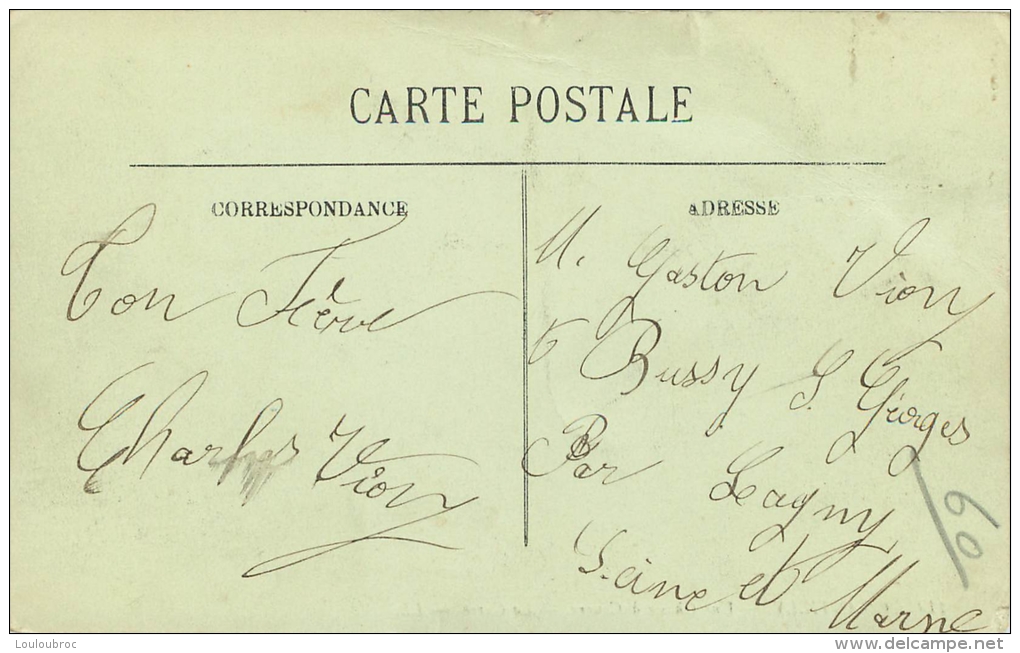 CARTE POSTALE
CORRESPONDANCE
Ton Frère
Charles Vion
ADRESSE
M. Gaston Vion
à Bussy S. Georges
Par Lagny
Seine et Marne
60
Louloubroc
delcampe.net